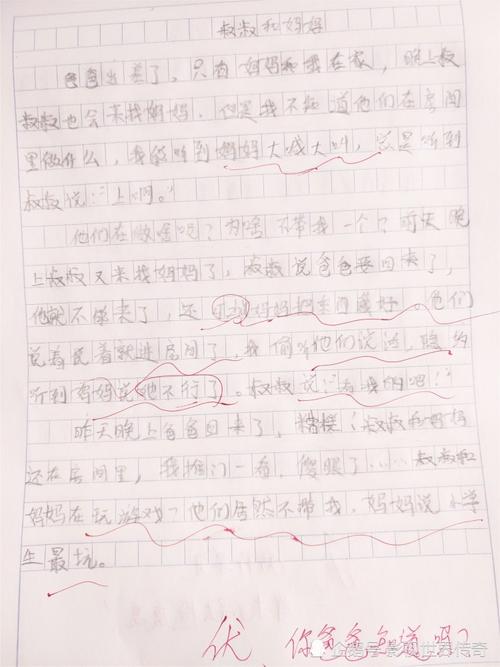 叔叔和妈妈
爸爸出差了，只有妈妈和我在家，晚上叔
叔叔也会来找妈妈．但是我不知道他们在房间
里做什么，我能听到妈妈大喊大叫，总是听到
叔叔说：“上啊。”
他们在做啥呢？为啥不带我一个？昨天晚
上叔叔又来找妈妈了，叔叔说爸爸要回来了，
他就不能来了，还叮嘱妈妈把东西藏好。他们
说着说着就进房间了，我偷听他们说话，隐约
听到妈妈说她不行了。叔叔说：“看我的吧！”
昨天晚上爸爸回来了，糟糕！叔叔和妈妈
还在房间里，我推门一看，傻眼了……叔叔和
妈妈在玩游戏？他们居然不带我，妈妈说小学
生最坑。
优 你爸爸知道吗？
企鹅号 影视世界传奇